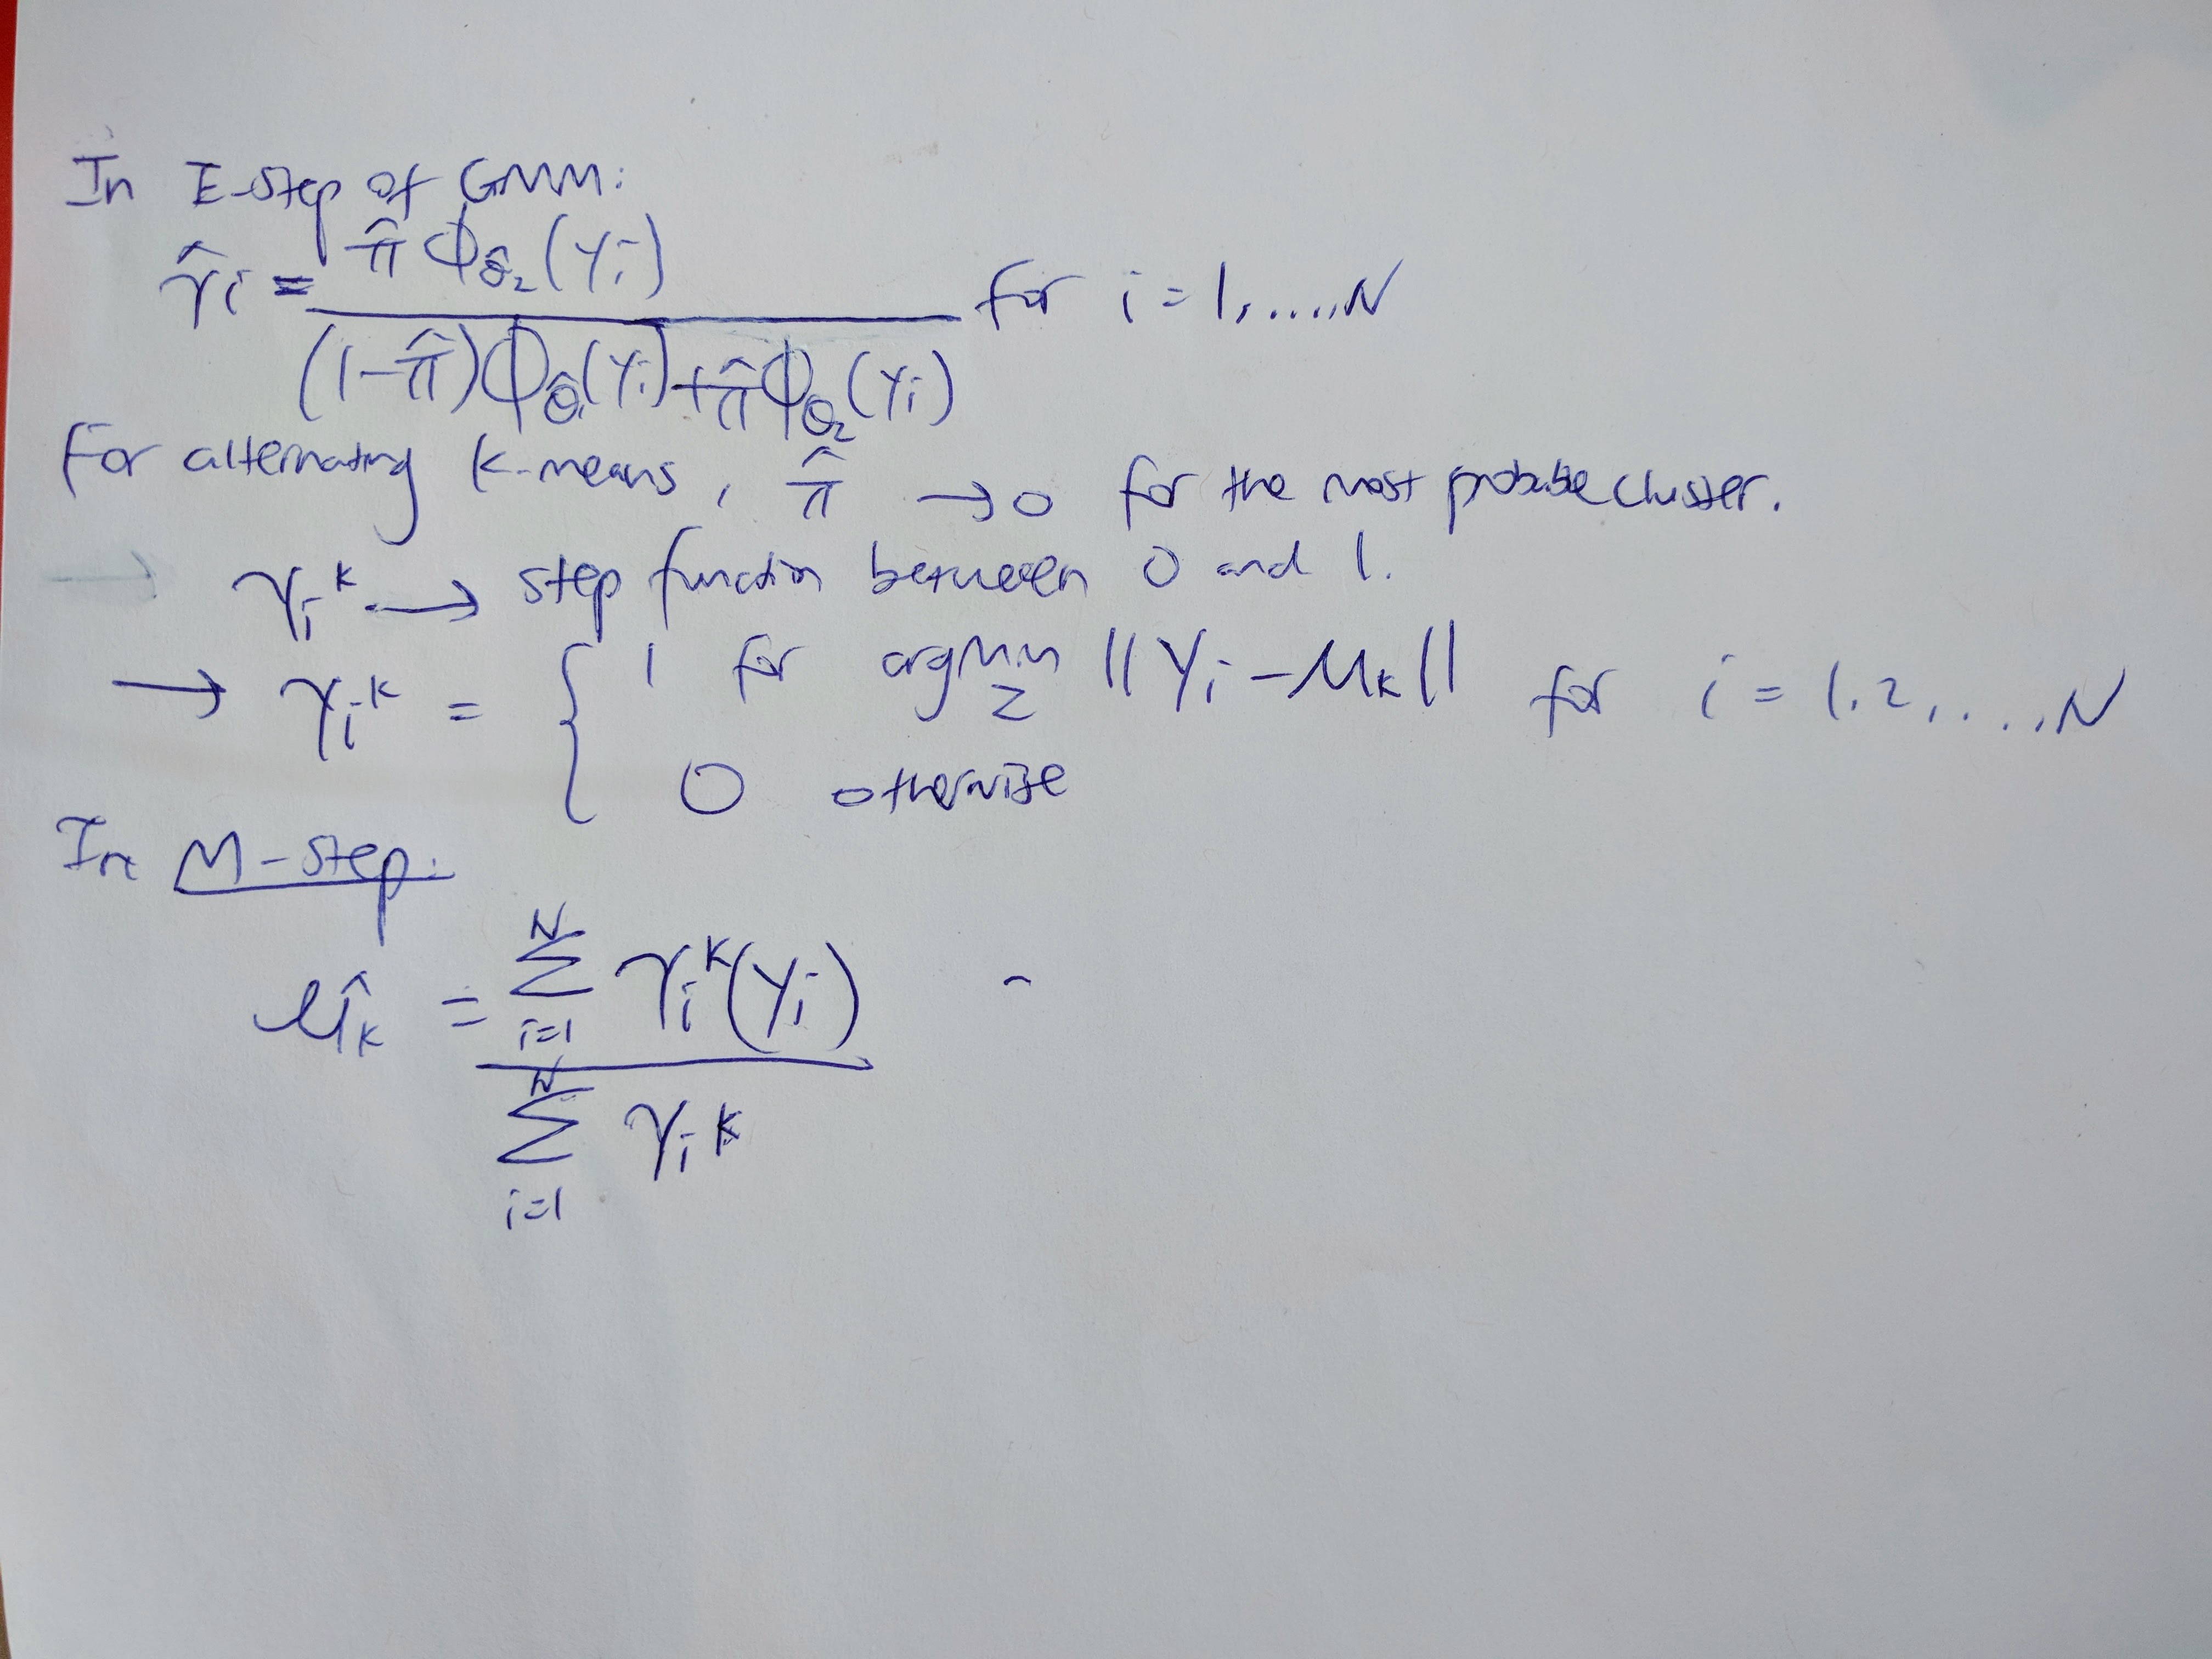 In E-step of GMM:
γ̂i = π̂ ϕθ̂₂(yi) / (1-π̂)ϕθ̂₁(yi) + π̂ϕθ̂₂(yi) for i = 1,....,N
For alternating k-means, π̂ → 0 for the most probable cluster.
γi^k → step function between 0 and 1.
→ γi^k = { 1 for argmin z ||Yi - μk|| for i = 1,2,....,N
0 otherwise
In M-step:
μ̂k = Σ i=1 N γi^k(yi) / Σ i=1 N γi^k